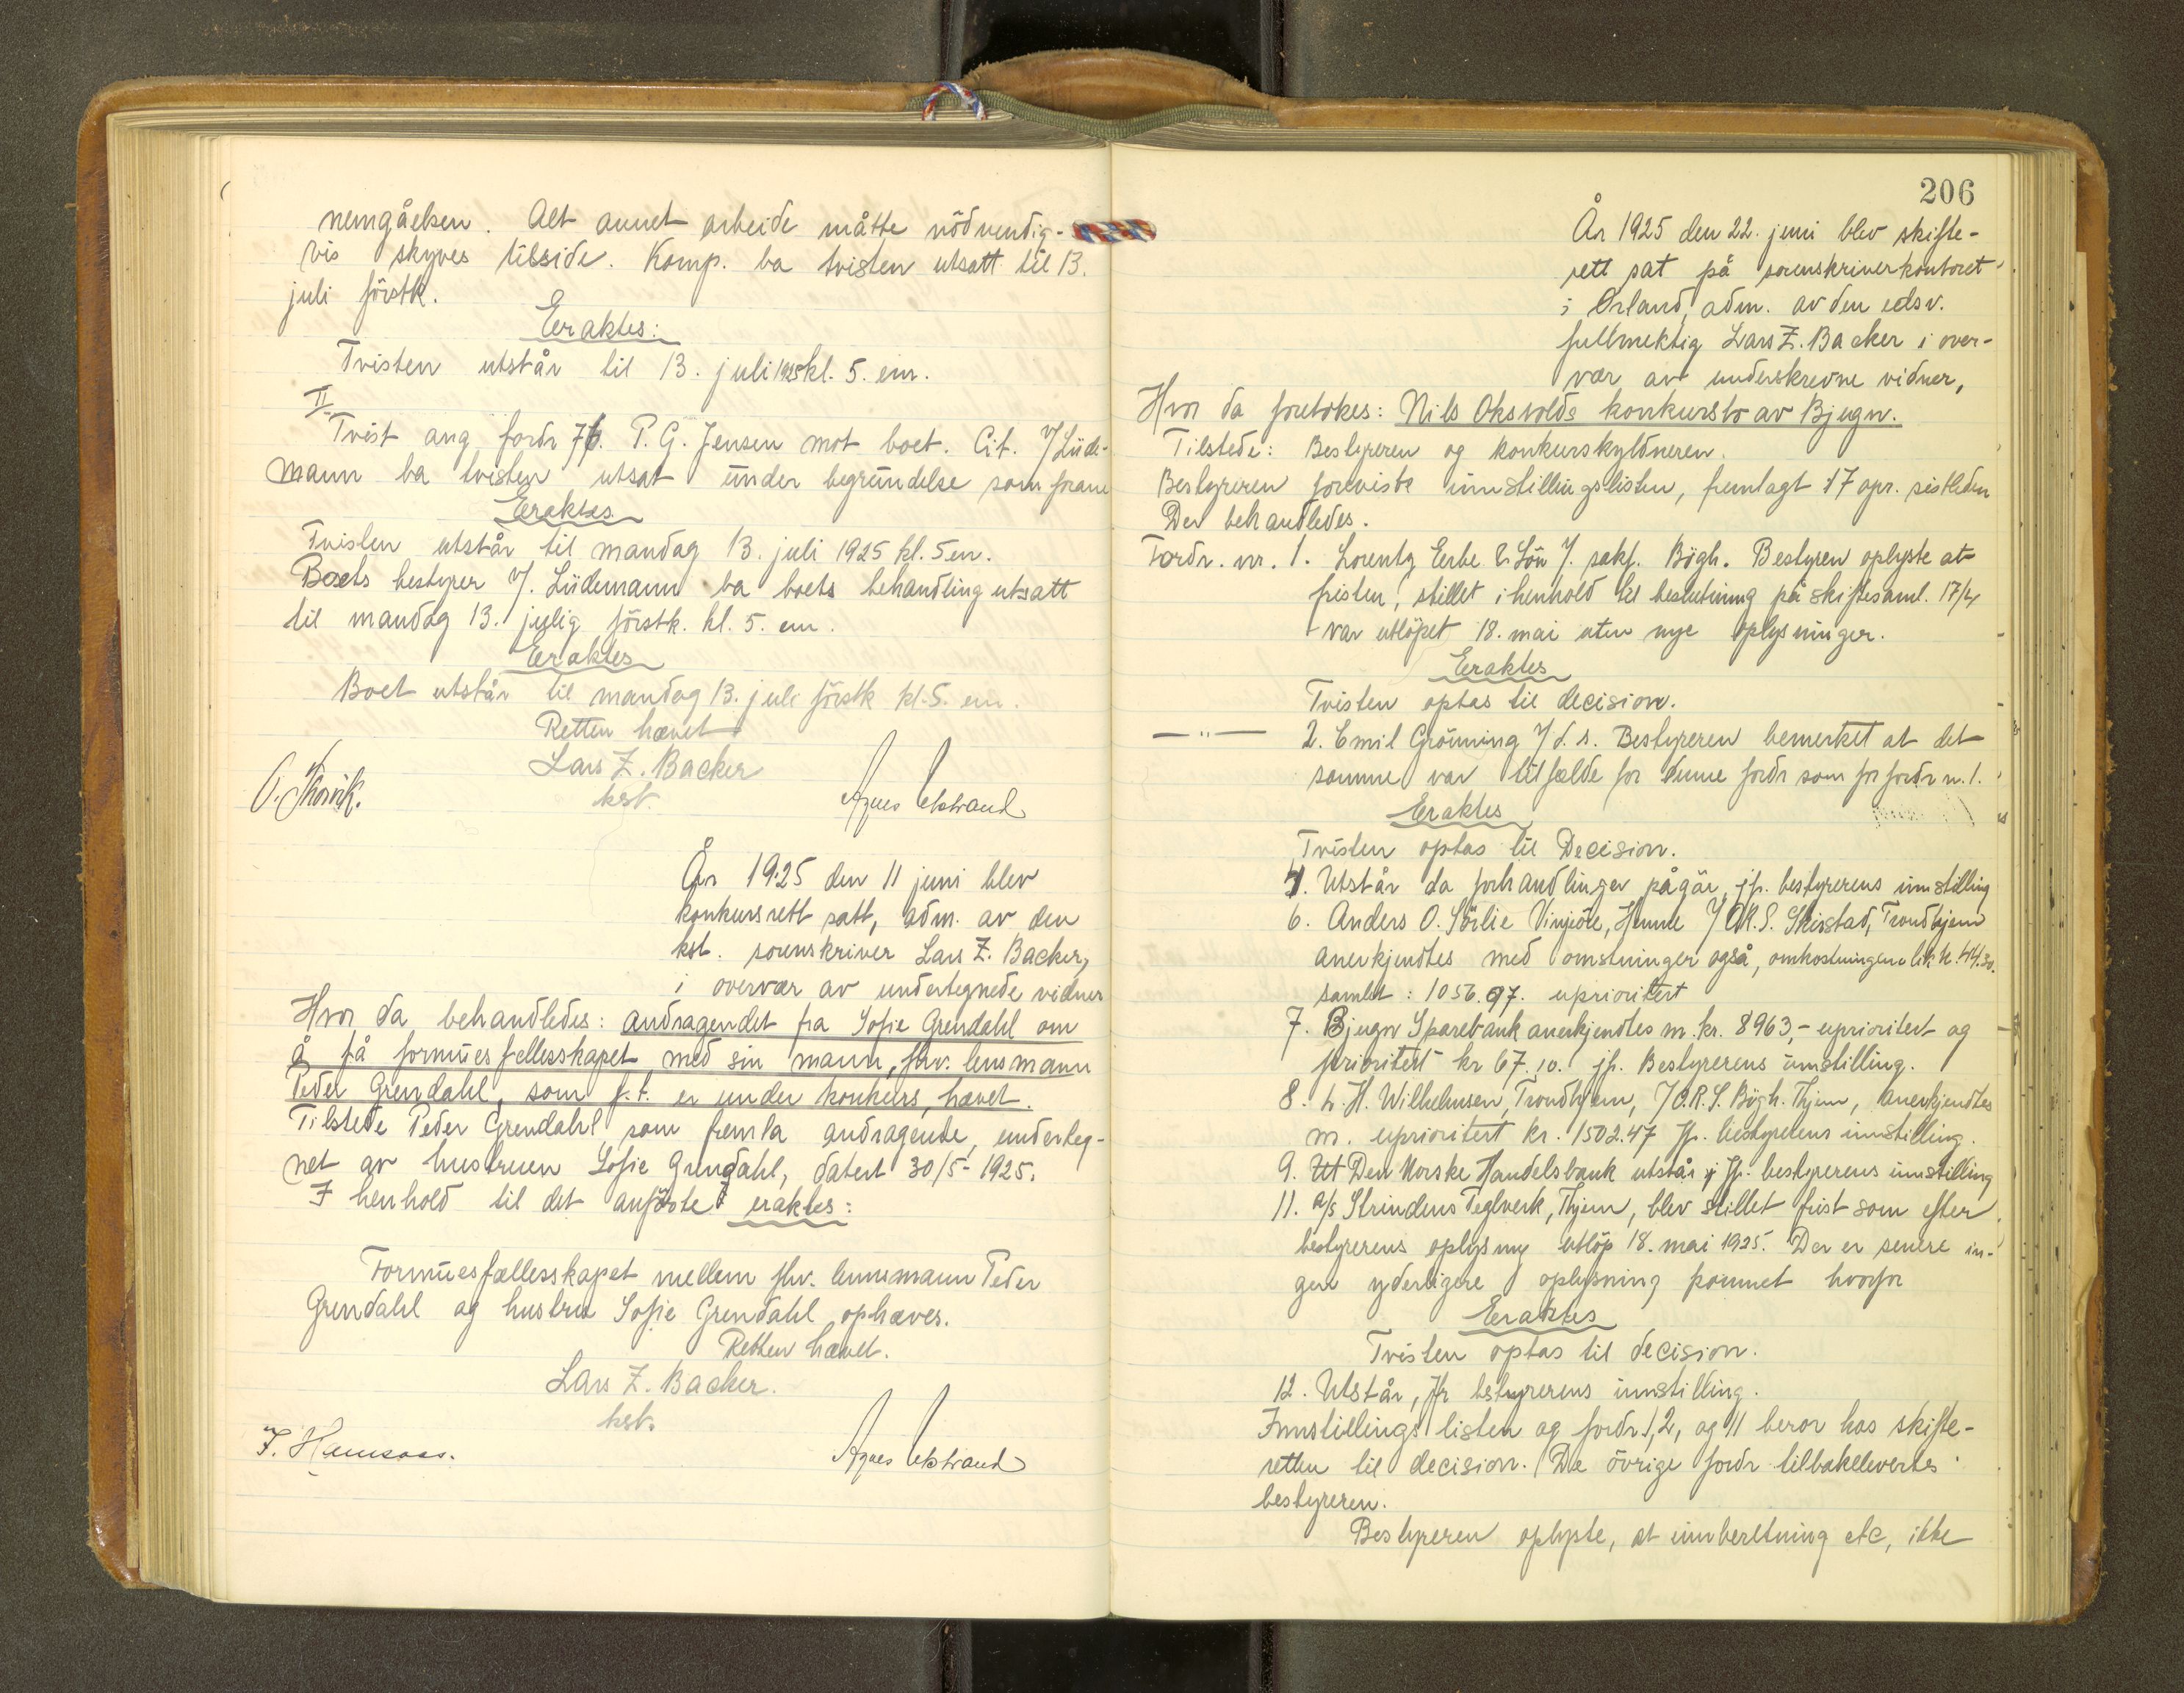 nemgåelsen. Alt annet arbeide måtte nödvendig-
vis skyves tilside. Komp. ba tvisten utsatt til 13.
juli förstk.
Eraktes:
Tvisten utstår til 13. juli 1925 kl. 5. em.
II
Tvist ang fordr 76. P. G. Jensen mot boet. Cit. V/Lüde-
mann ba tvisten utsat under begrundelse som forane
Eraktes
Tvisten utstår til mandag 13. juli 1925 kl. 5 em.
Boets bestyrer V. Lüdemann ba boets behandling utsatt
til mandag 13. juli förstk. kl. 5. em.
Eraktes
Boet utstår til mandag 13. juli förstk kl. 5. em.
Retten hævet
Lars Z. Backer
kst.
Agnes
År 1925 den 11 juni blev
konkursrett satt, adm. av den
kst. sorenskriver Lars Z. Backer,
i overvær av undertegnede vidner
Hvor da behandledes: andragendet fra Sofie Grendahl om
å få formuesfellesskapet med sin mann, fhv. lensmann
Peder Grendahl, som f.t. er under konkurs, hævet.
Tilstede Peder Grendahl som fremla andragende, underteg-
net av hustruen Sofie Grendahl, datert 30/5- 1925.
I henhold til det anförte eraktes:
Formuesfællesskapet mellem fhv. lennsmann Peder
Grendahl og hustru Sofie Grendahl ophæves.
Retten hævet.
Lars Z. Backer.
kst.
Agnes
206
År 1925 den 22. juni blev skifte-
rett sat på sorenskriverkontoret
i Örland, adm. av den edsv.
fullmektig Lars Z. Backer i over-
vær av underskrevne vidner,
Hvor da foretokes: Nils Oksvolds konkursbo av Bjugn.
Tilstede: Bestyreren og konkurskyldneren.
Bestyreren foreviste innstillingslisten, fremlagt 17 apr. sistleden
Den behandledes.
Fordr. nr. 1. Lorentz Erbe & Sön V. sakf. Bögh. Bestyren oplyste at
fristen, stillet i henhold til beslutning på skiftesaml. 17/4
var utlöpet 18. mai uten nye oplysninger.
Eraktes
Tvisten optas til decision.
— " — 2. Emil Grönning V/d. s. Bestyreren bemerket at det
samme var tilfælde for denne fordr som for fordr n. 1.
Eraktes
Tvisten optas til Decision.
4. Utstår da forhandlinger pågår, jfr. bestyrerens innstilling
6. Anders O. Sörlie Vinjeöre, Hemne V/O.R.S. Skisstad, Trondhjem
anerkjendtes med omstninger også, omkostningene lik kr. 44.30.
samlet: 1056.97. uprioritert
7. Bjugn Sparebank anerkjendtes m. kr. 8963,- uprioritert og
prioritert kr 67.10. jfr. Bestyrerens innstilling.
8. L. H. Wilhelmsen, Trondhjem, V/O.R.S. Bögh. Thjem, anerkjendtes
m. uprioritert kr. 1502.47 Jfr. bestyrerens innstilling.
9. Ut Den Norske Handelsbank utstår, Jfr. bestyrerens innstilling
11. A/S Strindens Teglverk, Thjem, blev stillet frist som efter
bestyrerens oplysning utlöp 18. mai 1925. Der er senere in-
gen yderligere oplysning kommet hvorfor
Eraktes
Tvisten optas til decision.
12. Utstår, Jfr bestyrerens innstilling.
Innstillingslisten og fordr. 1, 2, og 11 beror hos skifte-
retten til decision. De övrige fordr tilbakelevertes
bestyreren.
Bestyreren oplyste, at innberetning etc, ikke